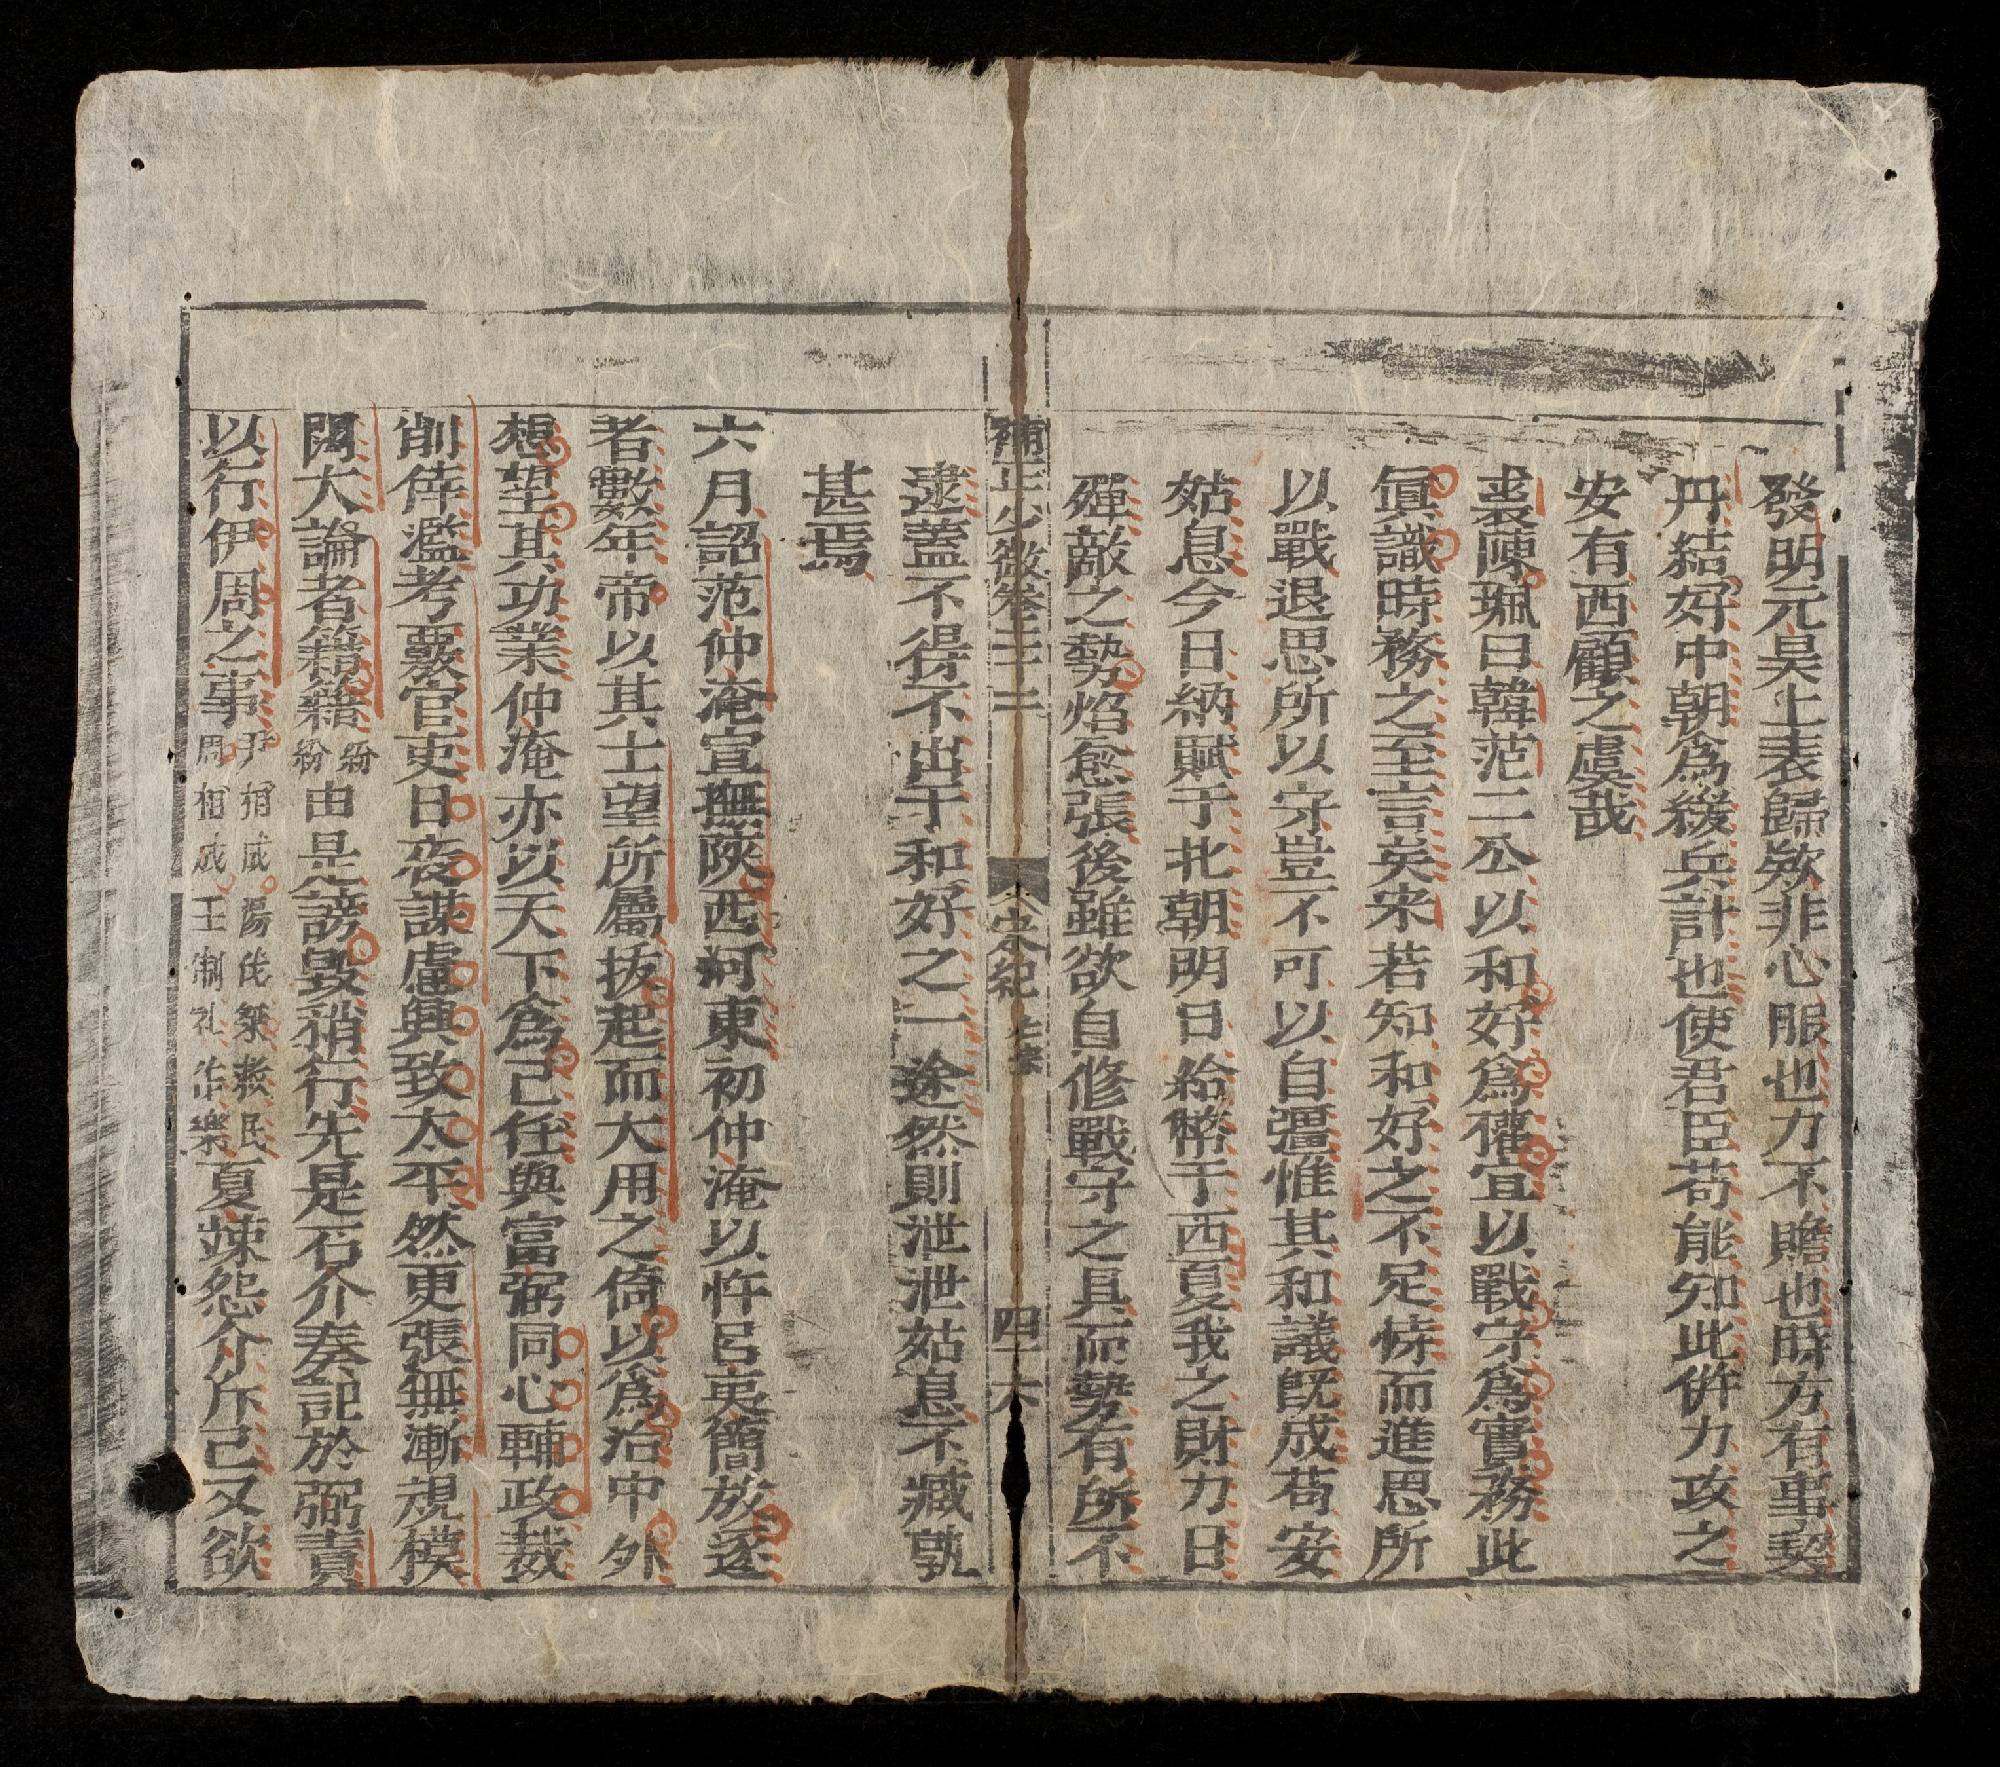 發明元昊上表歸欵非心服也力不贍也時方有事契
丹結好中朝爲緩兵計也使君臣苟能知此併力攻之
安有西顧之虞哉
裘陳珮曰韓范二公以和好爲權宜以戰守爲實務此
眞識時務之至言矣宋若知和好之不足恃而進思所
以戰退思所以守豈不可以自彊惟其和議旣成苟安
姑息今日納賦于北朝明日給幣于西夏我之財力日
殫敵之勢焰愈張後雖欲自修戰守之具而勢有所不
補正少微卷三十二 宋紀 仁宗 四十六
逮蓋不得不出于和好之一途然則泄泄姑息不臧孰
甚焉
六月詔范仲淹宣撫陝西河東初仲淹以忤呂夷簡放逐
者數年帝以其士望所屬拔起而大用之倚以爲治中外
想望其功業仲淹亦以天下爲己任與富弼同心輔政裁
削倖濫考覈官吏日夜謀慮興致太平然更張無漸規模
闊大論者籍籍紛紛由是謗毀稍行先是石介奏記於弼責
以行伊周之事尹相咸湯伐桀救民周相成王制礼作樂夏竦怨介斥己又欲